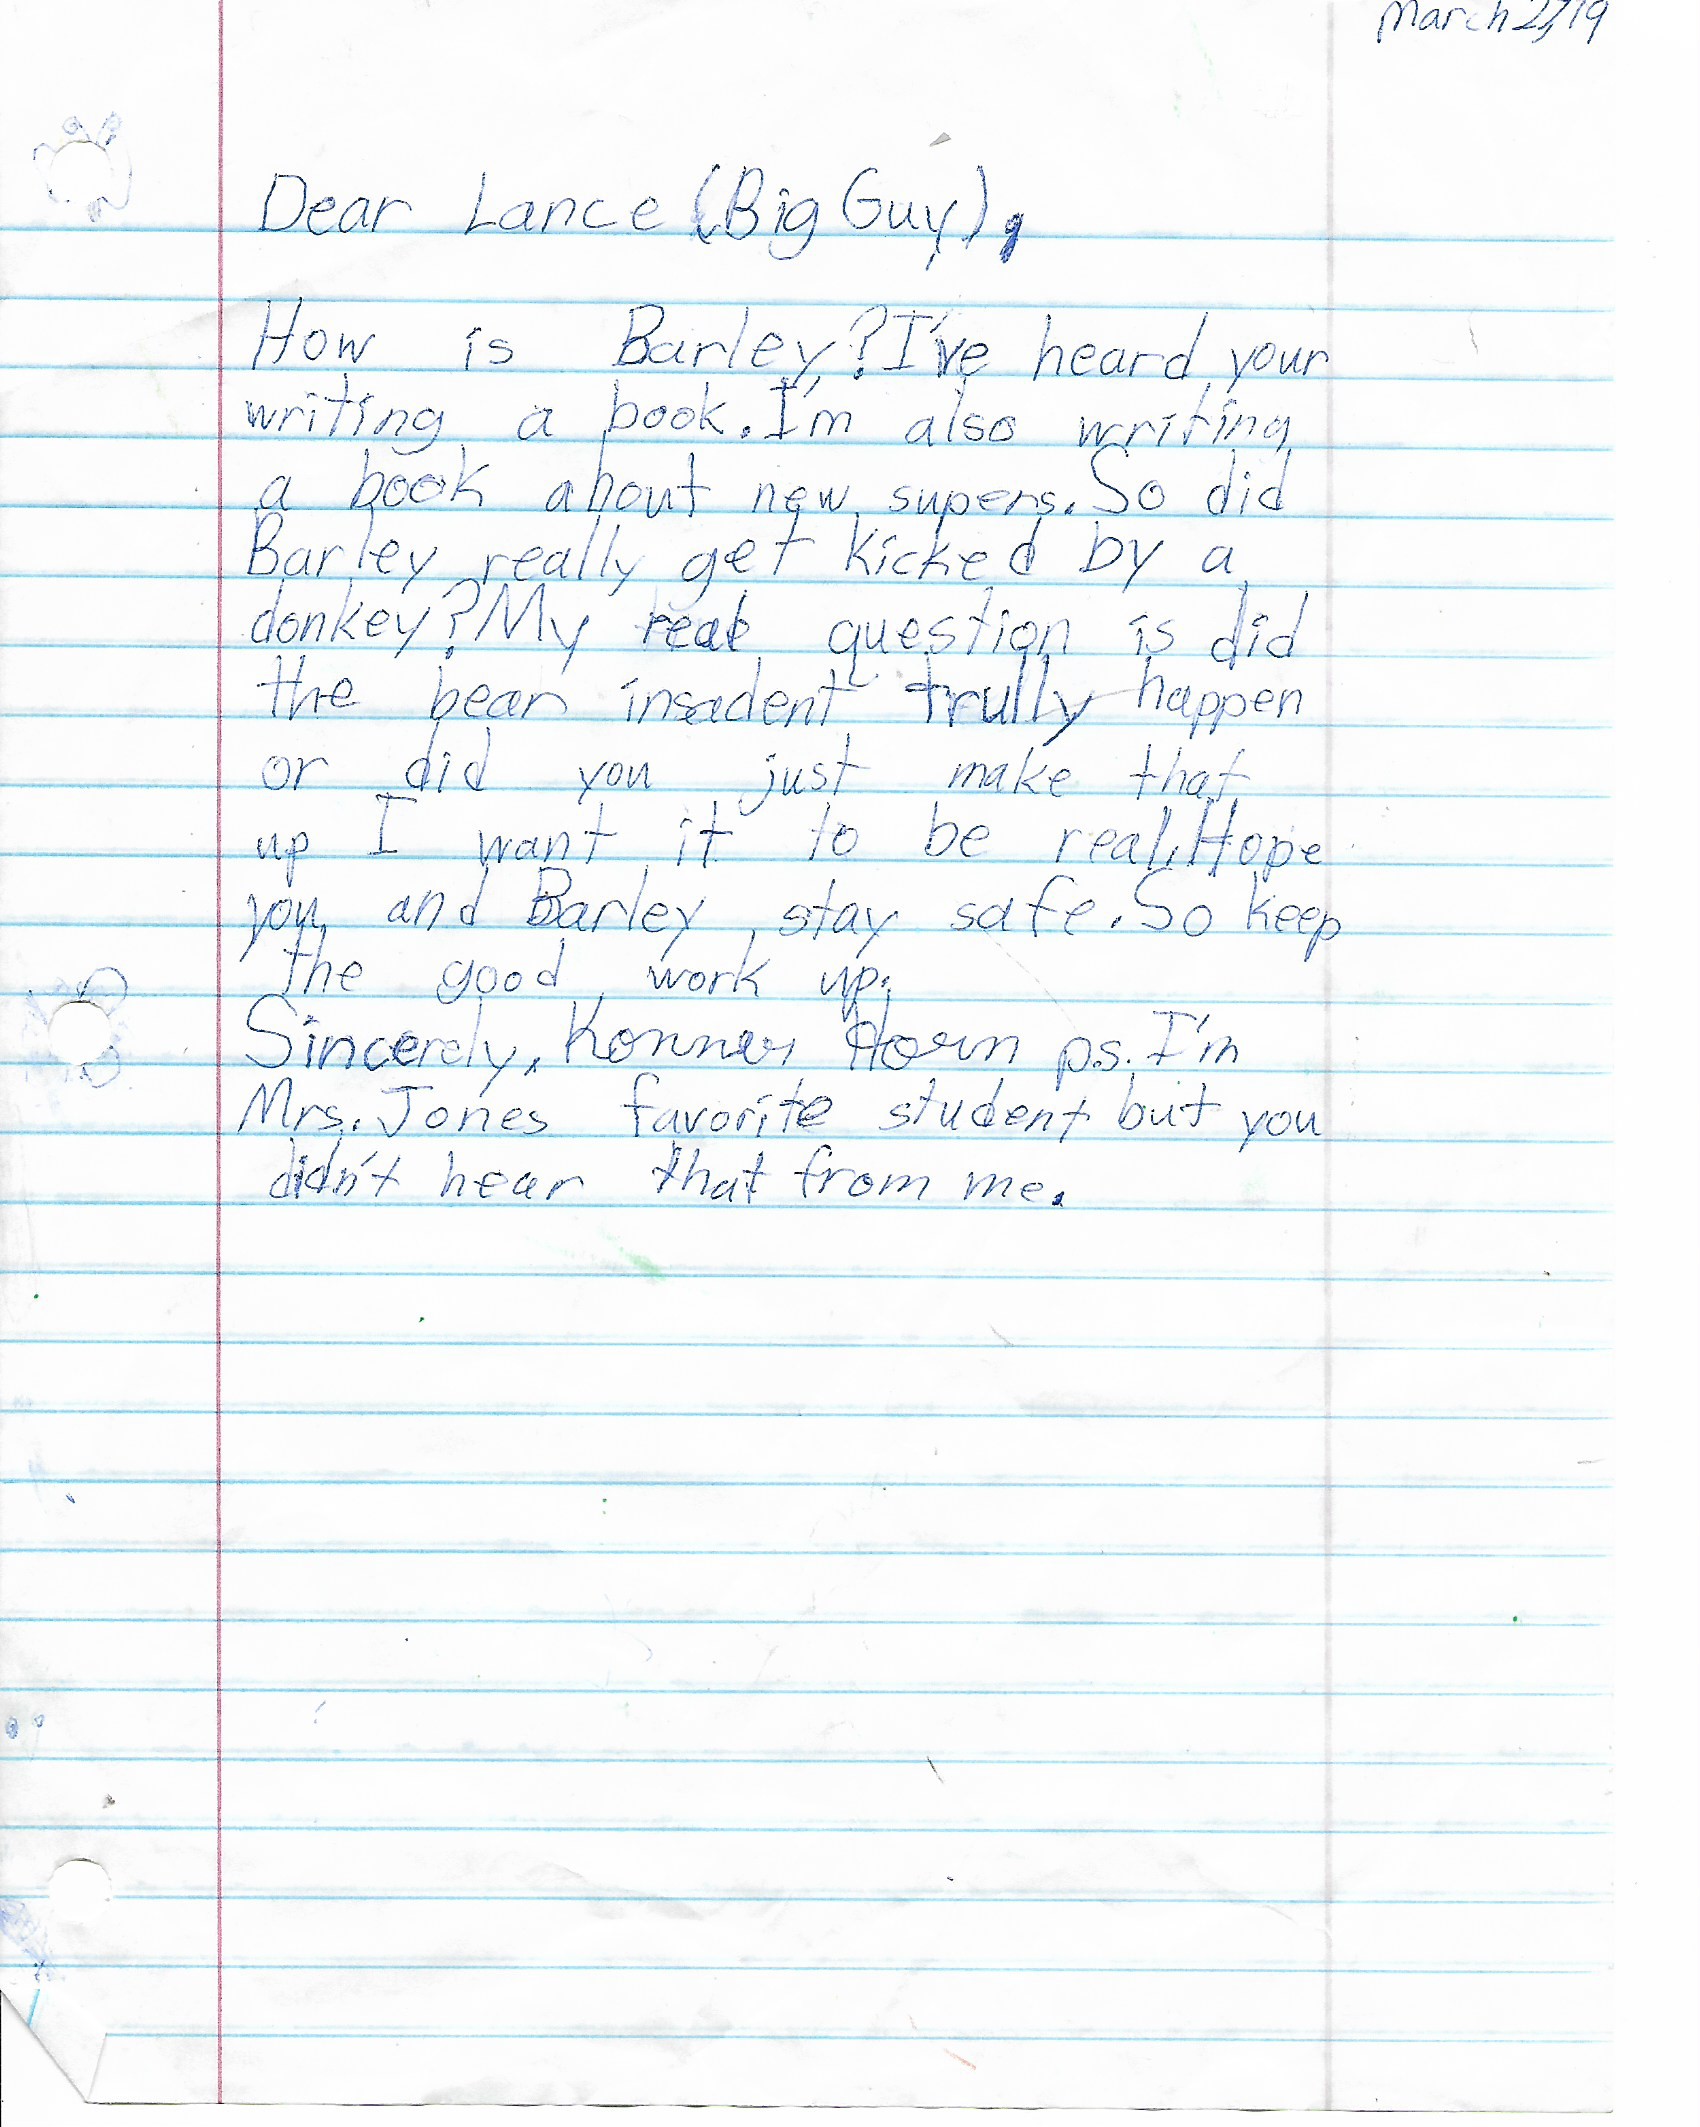 March 2,19
Dear Lance (Big Guy),
How is Barley? I've heard your
writing a book. I'm also writing
a book about new supers. So did
Barley really get kicked by a
donkey? My real question is did
the bear insadent trully happen
or did you just make that
up I want it to be real. Hope
you and Barley stay safe. So keep
the good work up.
Sincerely, Konner Horn p.s. I'm
Mrs. Jones favorite student but you
didn't hear that from me.